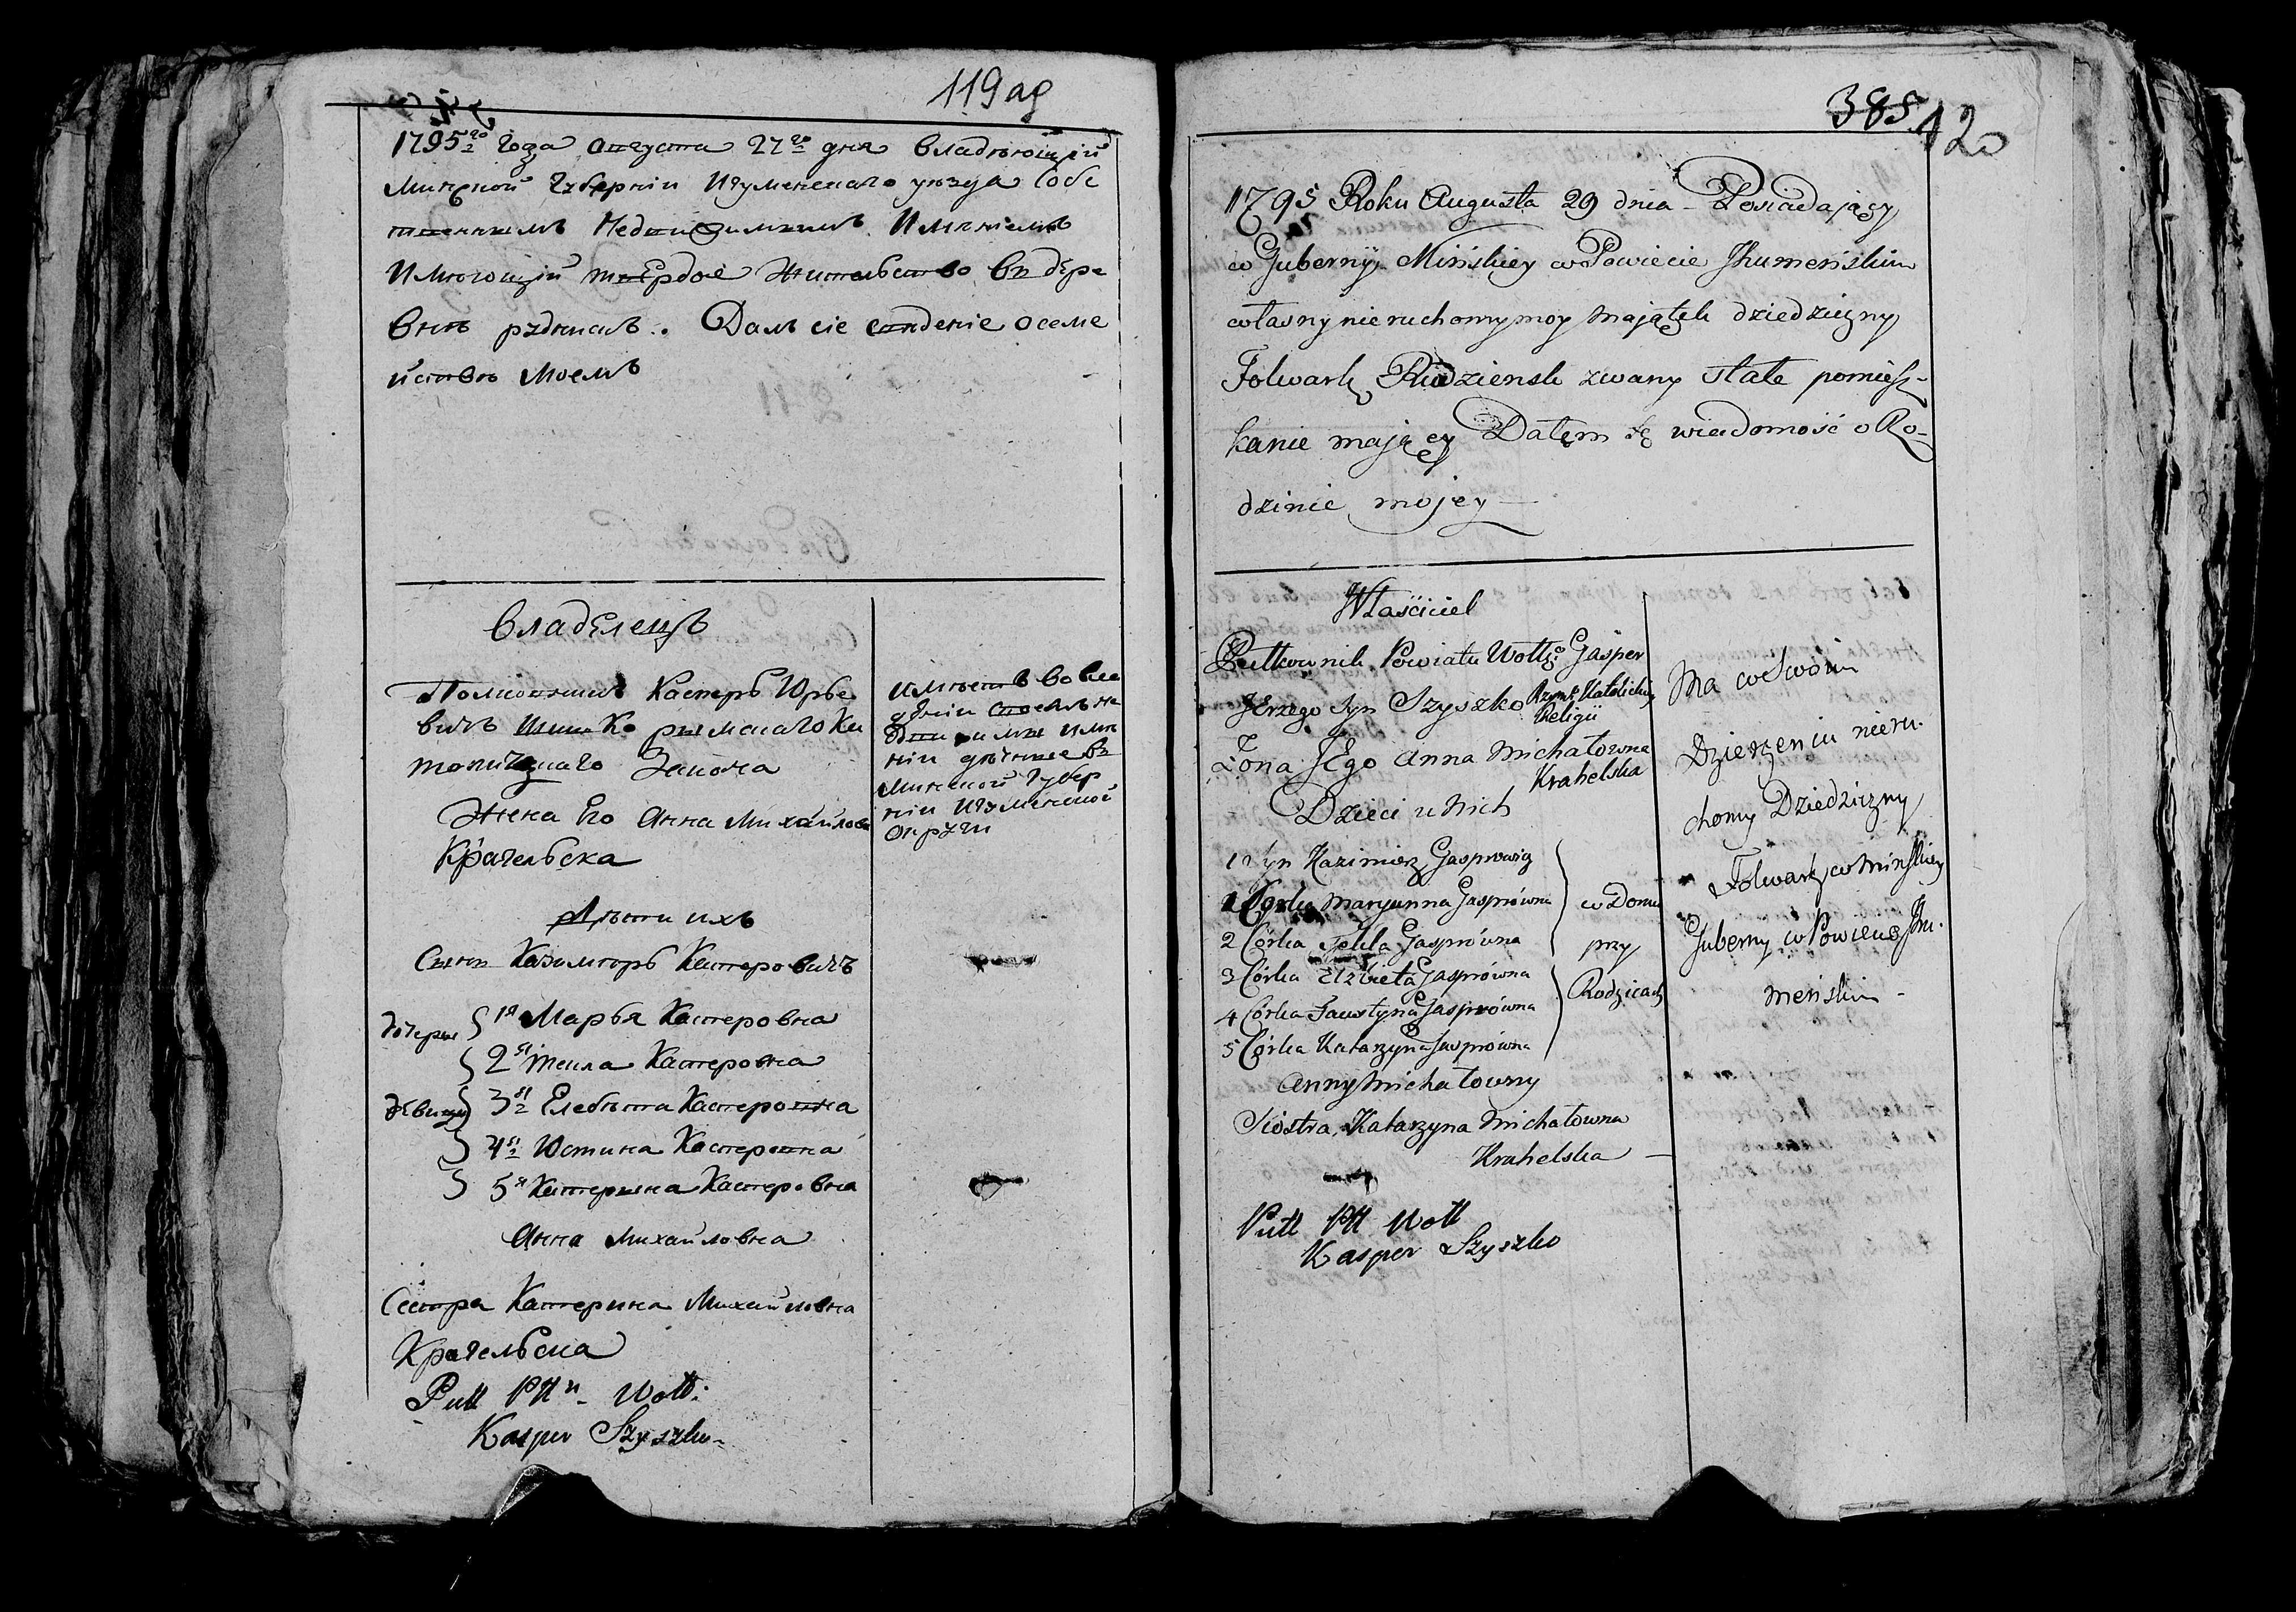 119 ag
1795го года августа 27го дня владѣющій
Минской губерніи Игуменскаго уѣзда собс
твеннымъ недвижимымъ имѣніемъ
имѣющій твердое жительство въ дере
внѣ рудинскъ. Далъ сіе свѣденіе о семе
йствѣ моемъ
владелецъ
Полковникъ Касперъ Юрье
вичъ Шишко рымскаго ка
толическаго закона
Жена его Анна Михайловна
Крагельска
имѣетъ во вла
деніи своемъ не
движимое имѣ
ніи
Минской губер
ніи Игуменской
округи
Дѣти ихъ
Сынъ Казимеръ Касперовичъ
дочери 1я Марья Касперовна
2я Текла Касперовна
девицы 3я Елсбѣта Касперовна
4я Юстина Касперовна
5я Катерина Касперовна
Анна Михайловна
Сестра Катерина Михайловна
Крагельска
Pułk Ptt Wołł:
Kasper Szyszko
385
120
1795 Roku Augusta 29 dnia Posiadający
w Gubernij Minskiey w Powiecie Jhumeńskim
własny nieruchomy moy Majątek dziedziczny
Folwark Rudziensk zwany stałe pomiesz-
kanie mający Dałem tę wiadomość o Ro-
dzinie mojey
Właściciel
Pułkownik Powiatu Wołłgo Gasper
Jerzego syn Szyszko Rzymsk. Katolickiey
Religii
Zona Jego Anna Michałowna
Krahelska
Dzieci u Nich
1 Syn Kazimierz Gasprowicz
1 Córka Maryanna Gasprówna
2 Córka Tekla Gasprówna
3 Córka Elzbieta Gasprówna
4 Córka Faustyna Gasprówna
5 Córka Katarzyna Gasprówna
w Domu
przy
Rodzicach
Anny Michałowny
Siostra Katarzyna Michałowna
Krahelska
Pułk Ptt Wołł
Kasper Szyszko
Ma w Swoim
Dzierżeniu nieru-
chomy Dziedziczny
Folwark w Minskiey
Guberny w Powiecie Jhu-
meńskim